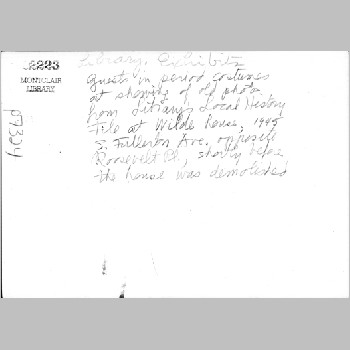 Library. Exhibits
02233
MONTCLAIR
LIBRARY
Guests in period costumes
at showing of old photos
from Library's Local History
File at Wilde House, 1945
S. Fullerton Ave. opposite
Roosevelt Pl., shortly before
the house was demolished
p7324